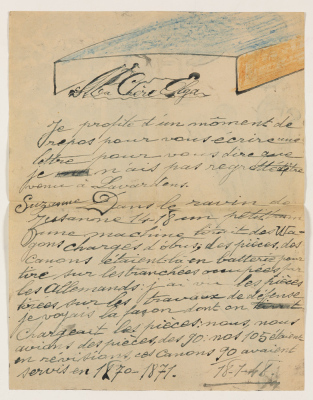 Ma Chère Olga
Je profite d'un moment de
repos pour vous écrire une
lettre pour vous dire que
je n ais pas regretté être
venu à
Suzanne Dans le ravin de
Suzanne 14-18 un petit
une machine était des Wa-
gons chargés d'obus, des pièces, des
Canons étaient là en batterie pour
tiré sur les tranchées occupées par
les Allemands: j'ai vu les pièces
tirées sur les travaux de défense
je voyais la façon dont on
Chargeait les pièces; nous, nous
avions des pièces, des 90: nos 105 étaient
en révisions, ces Canons 90 avaient
servis en 1870-1871.